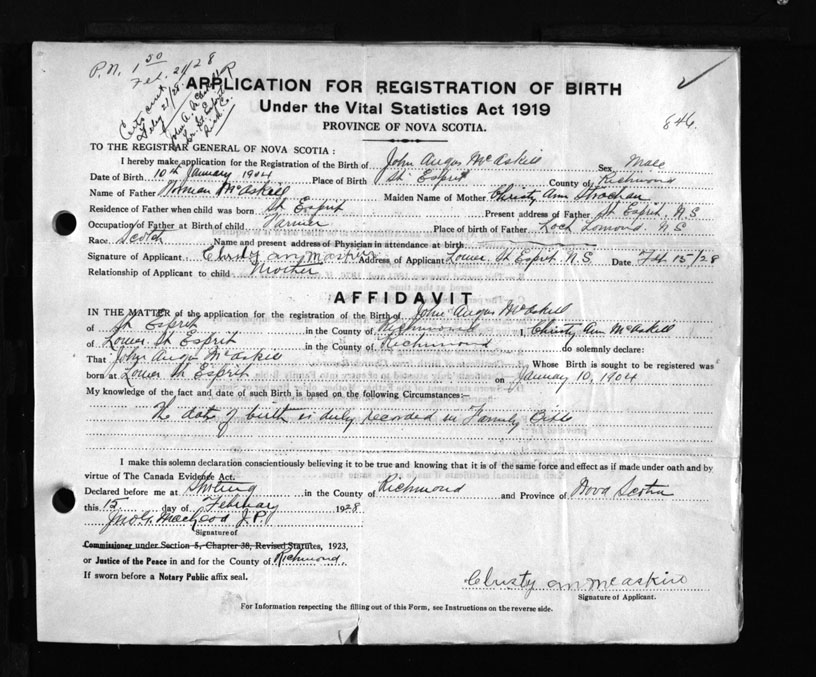 P.N. 1 50
Feb. 21/28
Feby 21/28
APPLICATION FOR REGISTRATION OF BIRTH
Under the Vital Statistics Act 1919
PROVINCE OF NOVA SCOTIA.
846
TO THE REGISTRAR GENERAL OF NOVA SCOTIA:
I hereby make application for the Registration of the Birth of John Angus McAskill Sex Male
Date of Birth 10th January 1904 Place of Birth St Esprit County of Richmond
Name of Father Norman McAskill Maiden Name of Mother Christy Ann Strachan
Residence of Father when child was born St Esprit Present address of Father St Esprit N.S
Occupation of Father at Birth of child Farmer Place of birth of Father Loch Lomond N.S
Race Scotch Name and present address of Physician in attendance at birth
Signature of Applicant Christy Ann McAskill Address of Applicant Lower St Esprit N.S. Date Feb 15/28
Relationship of Applicant to child Mother
AFFIDAVIT
IN THE MATTER of the application for the registration of the Birth of John Angus McAskill
of St Esprit in the County of Richmond I, Christy Ann McAskill
of Lower St Esprit in the County of Richmond do solemnly declare:
That John Angus McAskill Whose Birth is sought to be registered was
born at Lower St Esprit on January 10, 1904
My knowledge of the fact and date of such Birth is based on the following Circumstances:—
The date of birth is duly recorded in Family Bible
I make this solemn declaration conscientiously believing it to be true and knowing that it is of the same force and effect as if made under oath and by
virtue of The Canada Evidence Act.
Declared before me at Stirling in the County of Richmond and Province of Nova Scotia
this 15 day of February 1928
Jno. G. MacLeod J.P.
Signature of
Commissioner under Section 5, Chapter 38, Revised Statutes, 1923,
or Justice of the Peace in and for the County of Richmond.
If sworn before a Notary Public affix seal.
Christy Ann McAskill
Signature of Applicant.
For Information respecting the filling out of this Form, see Instructions on the reverse side.